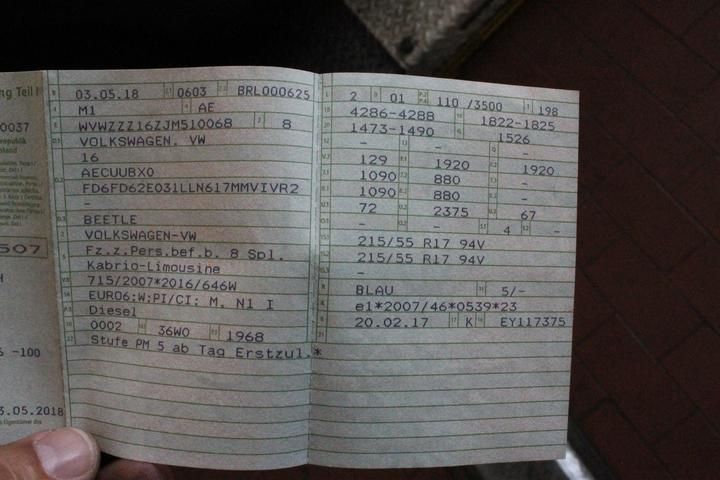 ng Teil I
0037
507
6 -100
3.05.2018
03.05.18 0603 BRL000625
M1 AE
WVWZZZ16ZJM510068 8
VOLKSWAGEN, VW
16
AECUUBX0
FD6FD62E031LLN617MMVIVR2
-
BEETLE
VOLKSWAGEN-VW
Fz.z.Pers.bef.b. 8 Spl.
Kabrio-Limousine
715/2007*2016/646W
EURO6;W;PI/CI; M, N1 I
Diesel
0002 36W0 1968
Stufe PM 5 ab Tag Erstzul.*
2 01 110 /3500 198
4286-4288 1822-1825
1473-1490 1526
- - -
129 1920 1920
1090 880 -
1090 880 -
72 2375 67
- - 4 -
215/55 R17 94V
215/55 R17 94V
-
BLAU 5/-
e1*2007/46*0539*23
20.02.17 K EY117375